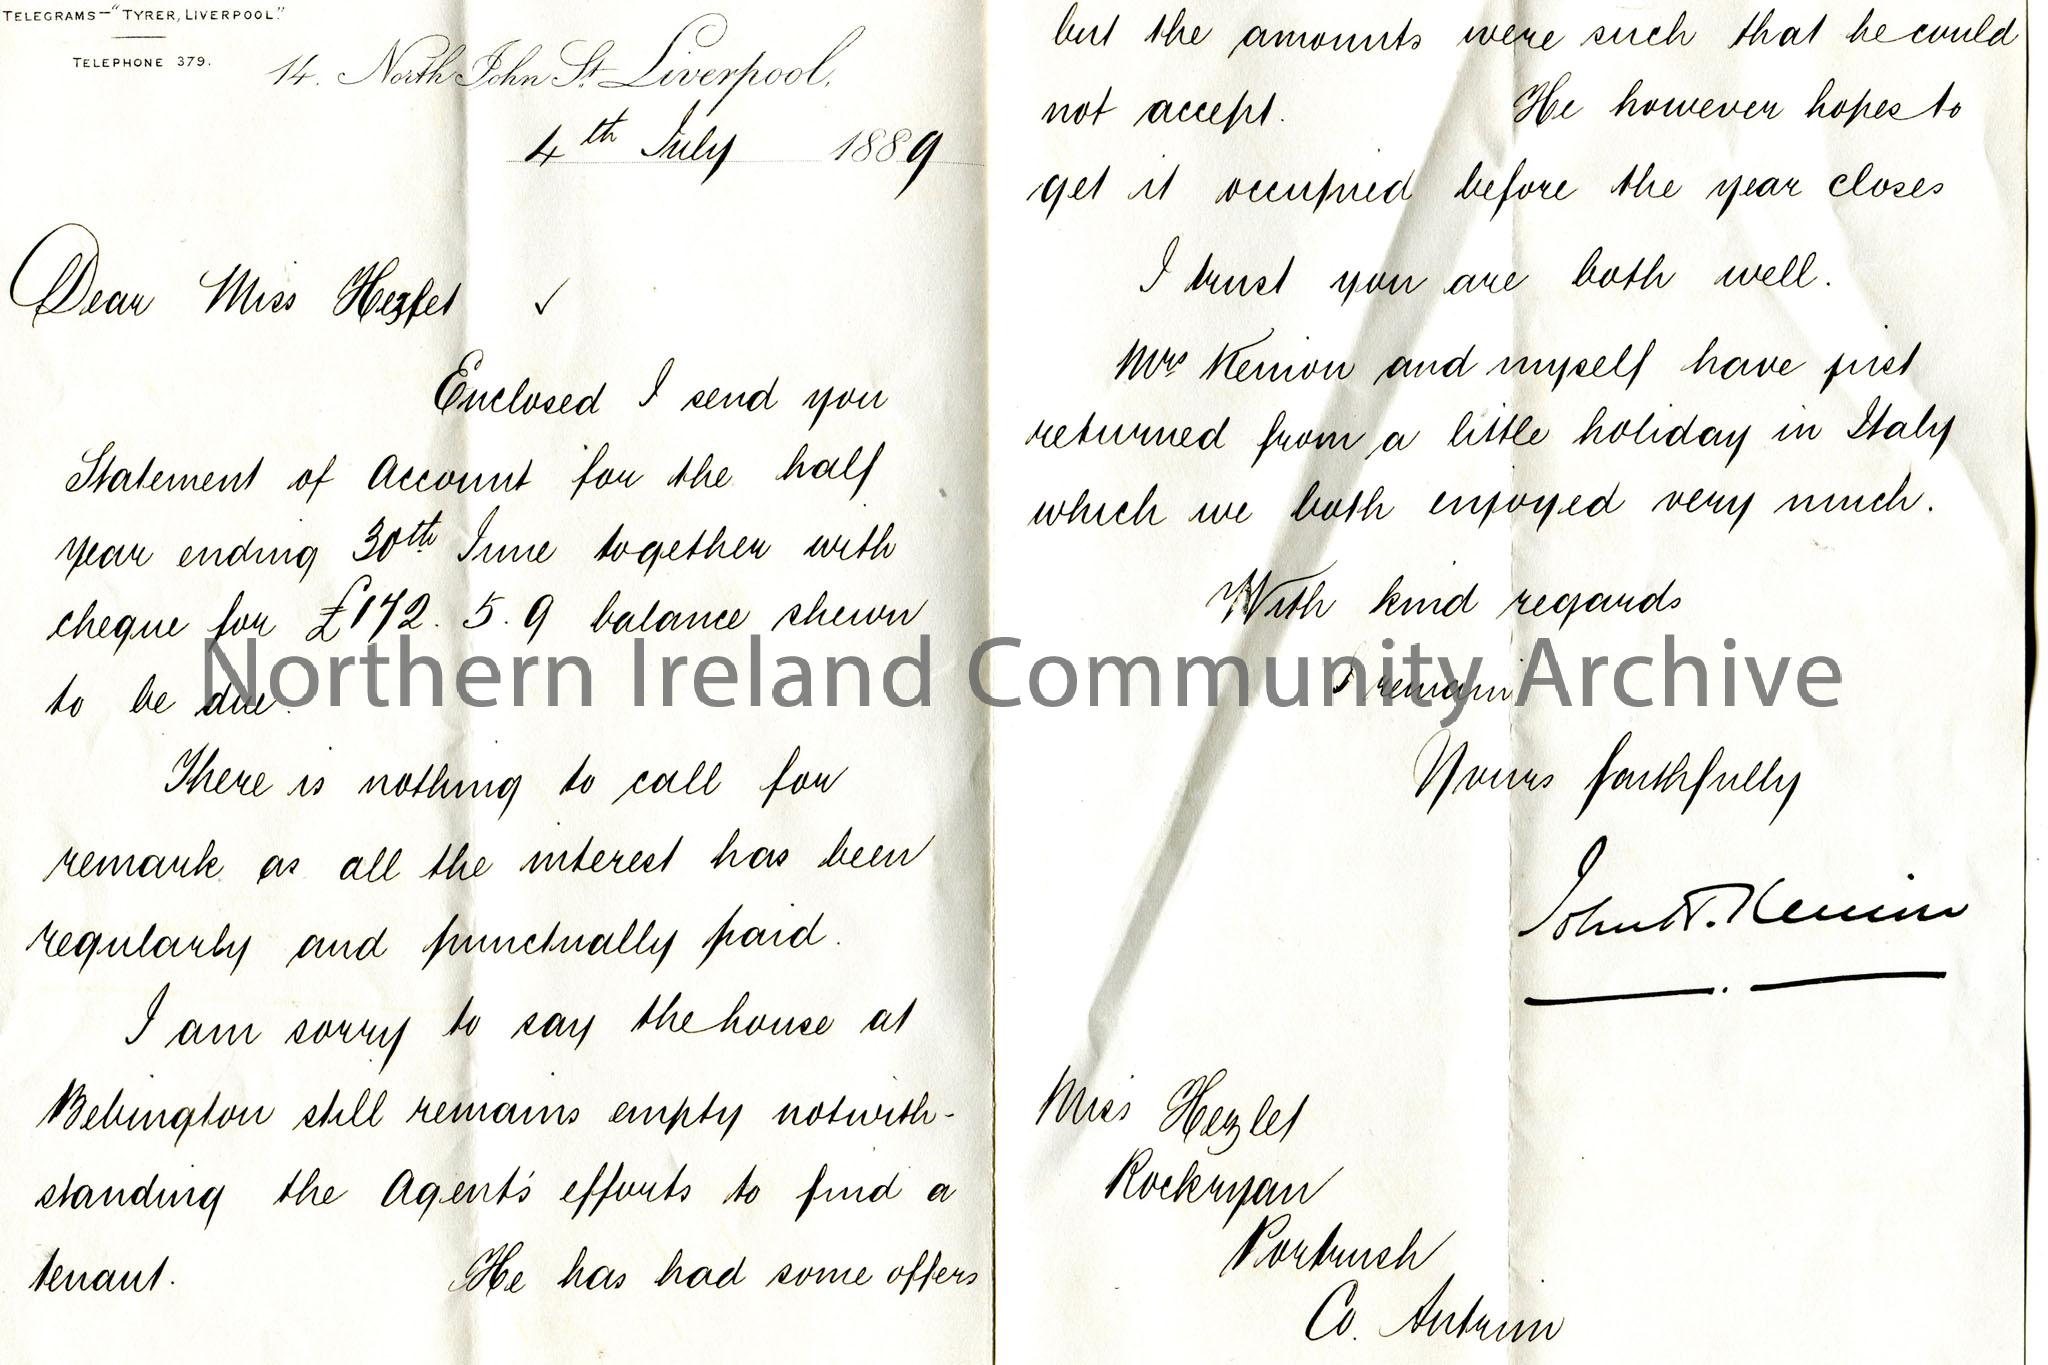 TELEGRAMS—"TYRER, LIVERPOOL."
TELEPHONE 379.
14. North John St. Liverpool,
4th July 1889
Dear Miss Hezlet ✓
Enclosed I send you
Statement of Account for the half
year ending 30th June together with
cheque for £172. 5. 9 balance shewn
to be due.
There is nothing to call for
remark as all the interest has been
regularly and punctually paid.
I am sorry to say the house at
Bebington still remains empty notwith-
standing the Agent's efforts to find a
tenant. He has had some offers
but the amounts were such that he could
not accept. He however hopes to
get it occupied before the year closes
I trust you are both well.
Mrs Kenion and myself have just
returned from a little holiday in Italy
which we both enjoyed very much.
With kind regards
I remain
Yours faithfully
John T. Kenion
Miss Hezlet
Rockryan
Portrush
Co. Antrim
Northern Ireland Community Archive